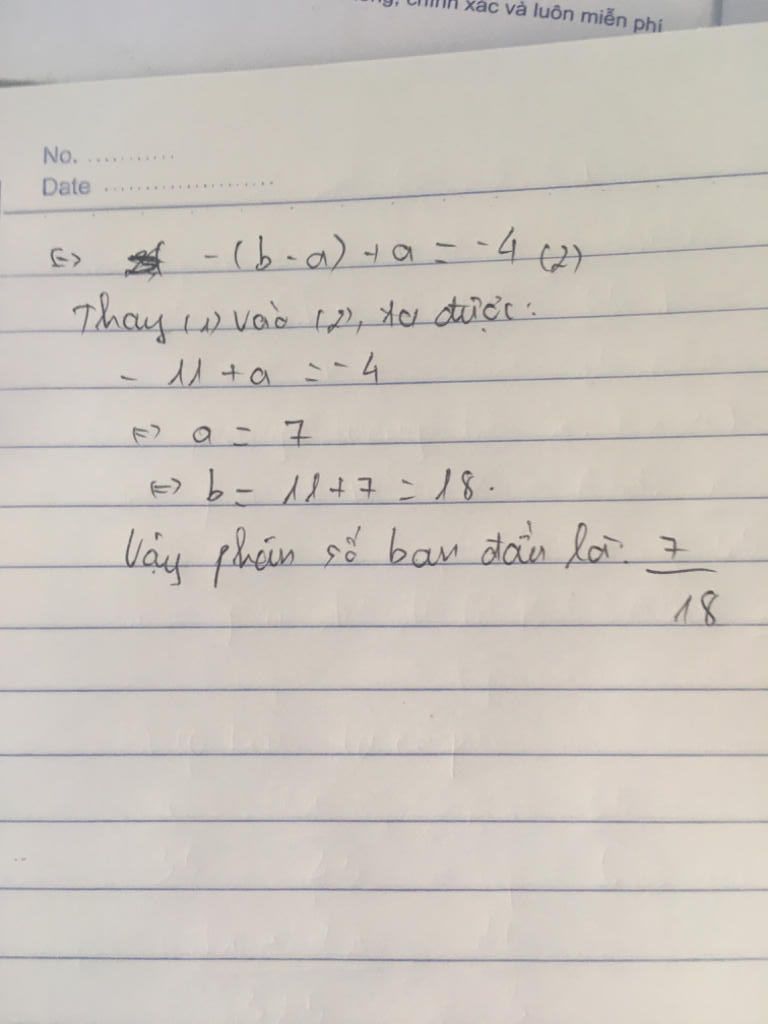 chính xác và luôn miễn phí
No. ...........
Date .....................
<=> -(b-a)+a=-4 (2)
Thay (1) vào (2), ta được:
- 11 + a = -4
<=> a = 7
<=> b = 11+7 = 18.
Vậy phân số ban đầu là: 7/18